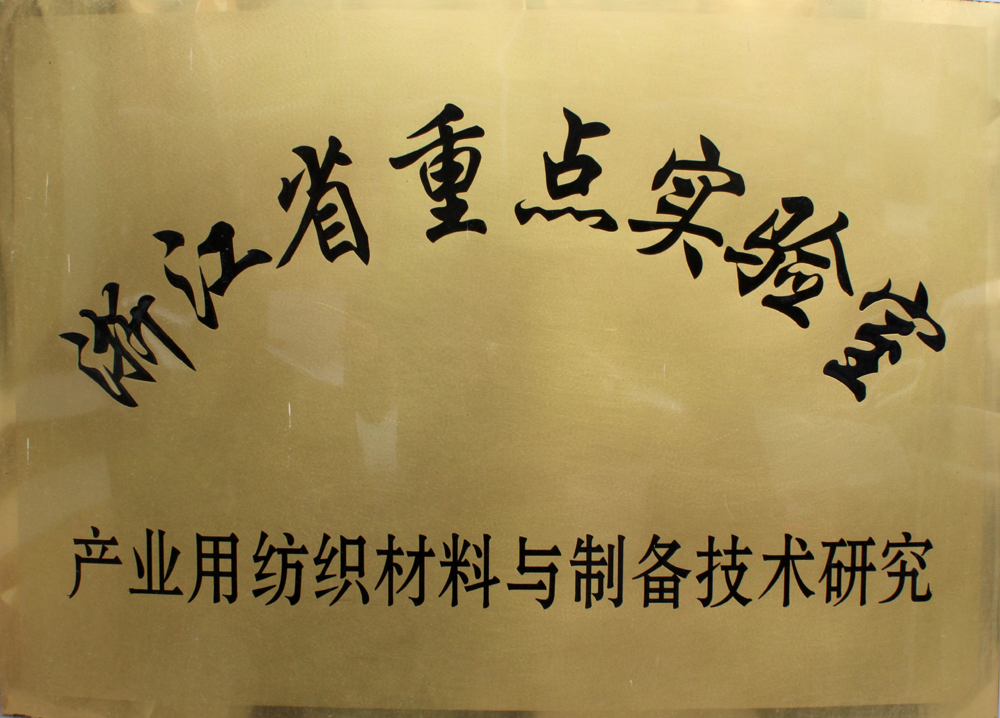 浙江省重点实验室
产业用纺织材料与制备技术研究